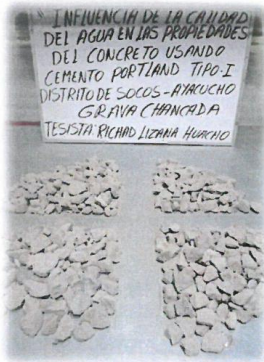 "INFLUENCIA DE LA CALIDAD
DEL AGUA EN LAS PROPIEDADES
DEL CONCRETO USANDO
CEMENTO PORTLAND TIPO-I
DISTRITO DE SOCOS-AYACUCHO
GRAVA CHANCADA
TESISTA: RICHAD LIZANA HUACHO